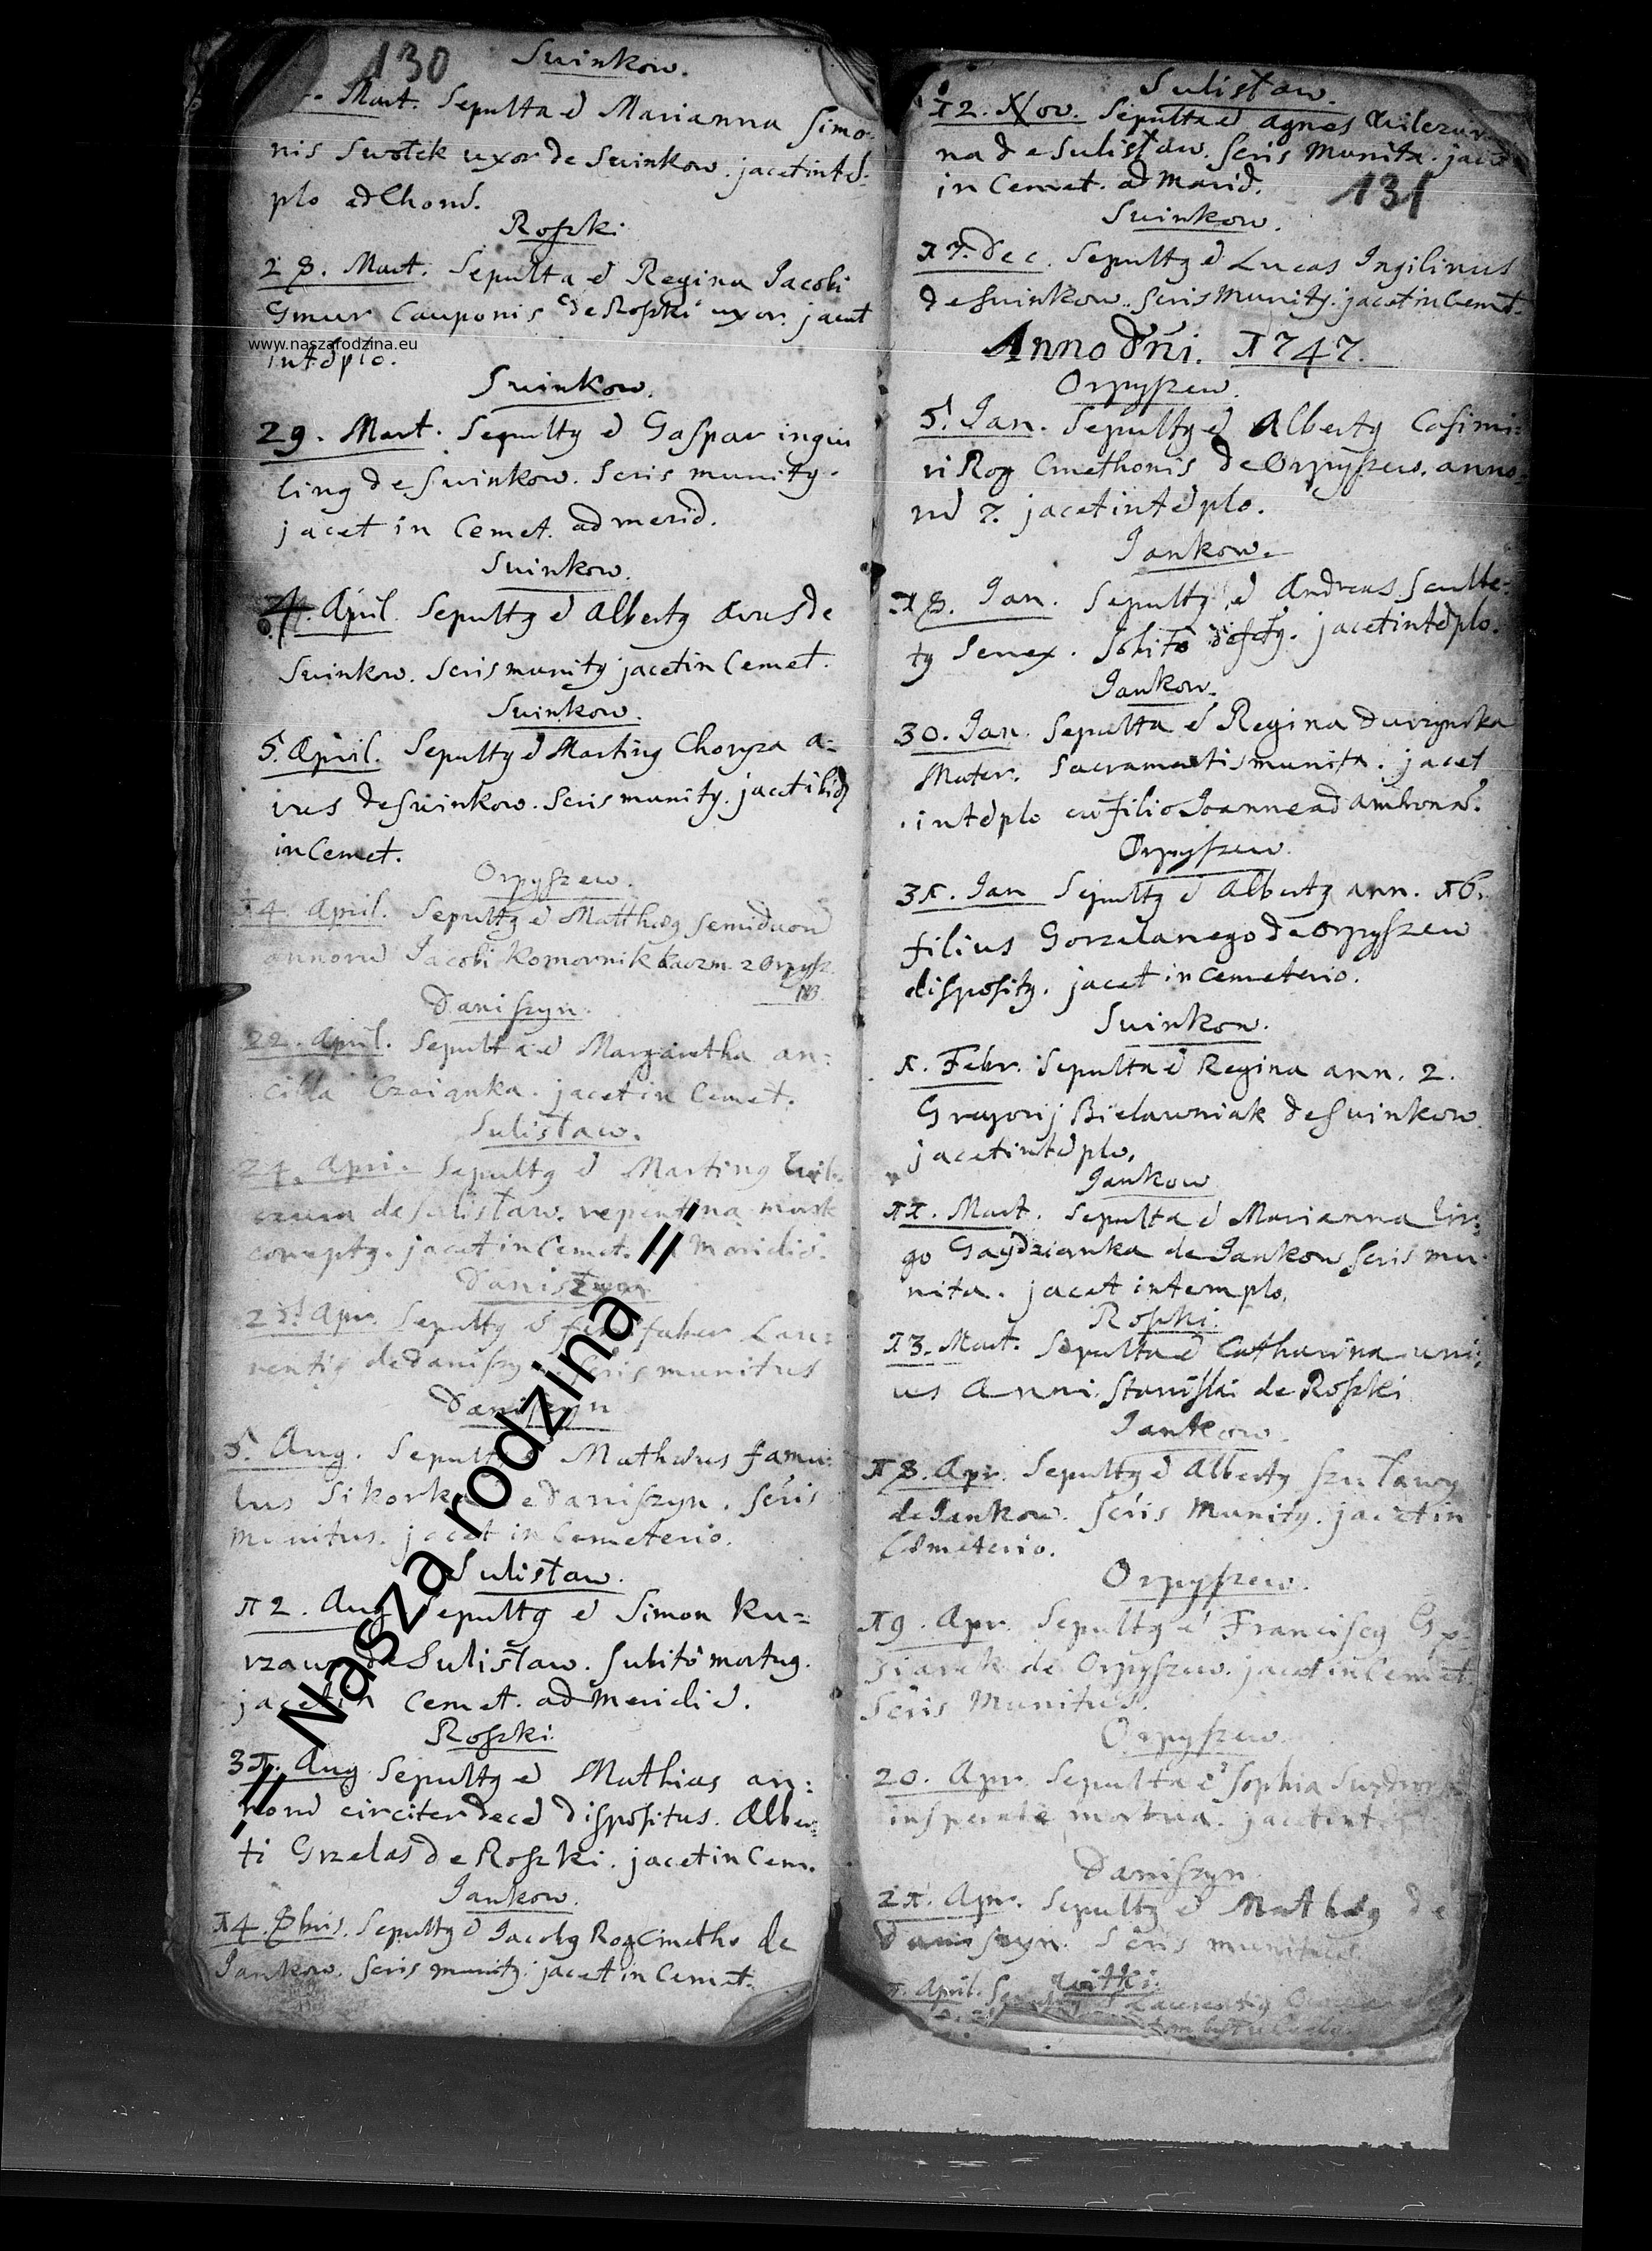 130
Suinkow.
Mart. Sepulta ē Marianna Simo-
nis Swołek uxor de Suinkow. jacet in tē-
plo ad Chorū.
Roszki
28. Mart. Sepulta ē Regina Jacobi
Gmur Cauponis de Roszki uxor. jacet
www.naszarodzina.eu
in tēplo.
Suinkow.
29. Mart. Sepultq ē Gaspar ingui
linq de Suinkow. Scris munitq.
jacet in Cemet. ad merid.
Suinkow.
4. April. Sepultq ē Albertq avus de
Suinkow. Scris munitq jacet in Cemet.
Suinkow.
5. April. Sepultq ē Martinq Choryza a=
vus de Suinkow. Scris munitq. jacet ibidē
in Cemet.
Orpyszew.
14. April. Sepultq ē Matthæq semiduorū
annorū Jacobi Komornik kaczm. z Orpysz.
NB
Daniszyn.
22. April. Sepulta ē Margaretha an=
cilla Czaianka. jacet in Cemet.
Sulisław.
24. Apri. Sepultq ē Martinq
de Sulisław. repentina morte
correptq. jacet in Cemet. ad Meridiē.
Daniszyn
Apr. Sepultq ē faber Lau=
rentiq de Daniszyn Scris munitus
Daniszyn
5. Aug. Sepultq ē Mathæus famu=
lus Sikorka de Daniszyn. Scris
Munitus. jacet in Cemeterio.
Sulisław.
12. Aug. Sepultq ē Simon Ku=
rzawa de Sulisław. Subito mortuq.
jacet in Cemet. ad Meridiē.
Roszki.
31. Aug. Sepultq ē Mathias an=
norū circiter decē dispositus. Alber=
ti Grzelas de Roszki. jacet in Cem.
Jankow.
14. 8bris. Sepultq ē Jacobq Rog Cmetho de
Jankow. Scris munitq. jacet in Cemet.
"Nasza rodzina"
Sulisław.
12. Nov. Sepulta ē Agnes Wilczur-
na de Sulisław. Scris Munita. jacet
in Cemet. ad Merid.
131
Suinkow.
17. Dec. Sepultq ē Lucas Ingilinus
de Suinkow. Scris Munitq. jacet in Cemet.
Anno Dn̄i. 1747.
Orpyszew.
5. Jan. Sepultq ē Albertq Casimi=
ri Rog Cmethonis de Orpyszew. anno=
rū 7. jacet in tēplo.
Jankow.
18. Jan. Sepultq ē Andreas Sculte=
tq Senex. jacet in tēplo.
Jankow.
30. Jan. Sepulta ē Regina Durzynska
Mater. Sacramentis munita. jacet
in tēplo cū filio Joanne ad ambonē.
Orpyszew.
31. Jan Sepultq ē Albertq ann. 16.
filius Gorzelanego de Orpyszew
dispositq. jacet in Cemeterio.
Suinkow.
1. Febr. Sepulta ē Regina ann. 2.
Gregorij Bielawniak de Suinkow
jacet in tēplo.
Jankow
11. Mart. Sepulta ē Marianna Vir=
go Gaydzianka de Jankow Scris mu=
nita. jacet in templo.
Roszki.
13. Mart. Sepulta ē Catharina uni=
us Anni Stanislai de Roszki
Jankow.
18. Apr. Sepultq ē Albertq Szuławy
de Jankow. Scris Munitq. jacet in
Cemeterio.
Orpyszew.
19. Apr. Sepultq ē Franciscq
de Orpyszew. jacet in Cemet.
Scris Munitus.
Orpyszew.
20. Apr. Sepulta ē Sophia
insperate mortua. jacet in
Daniszyn.
21. Apr. Sepultq ē Mathæq de
Daniszyn. Scris munitus.
April.